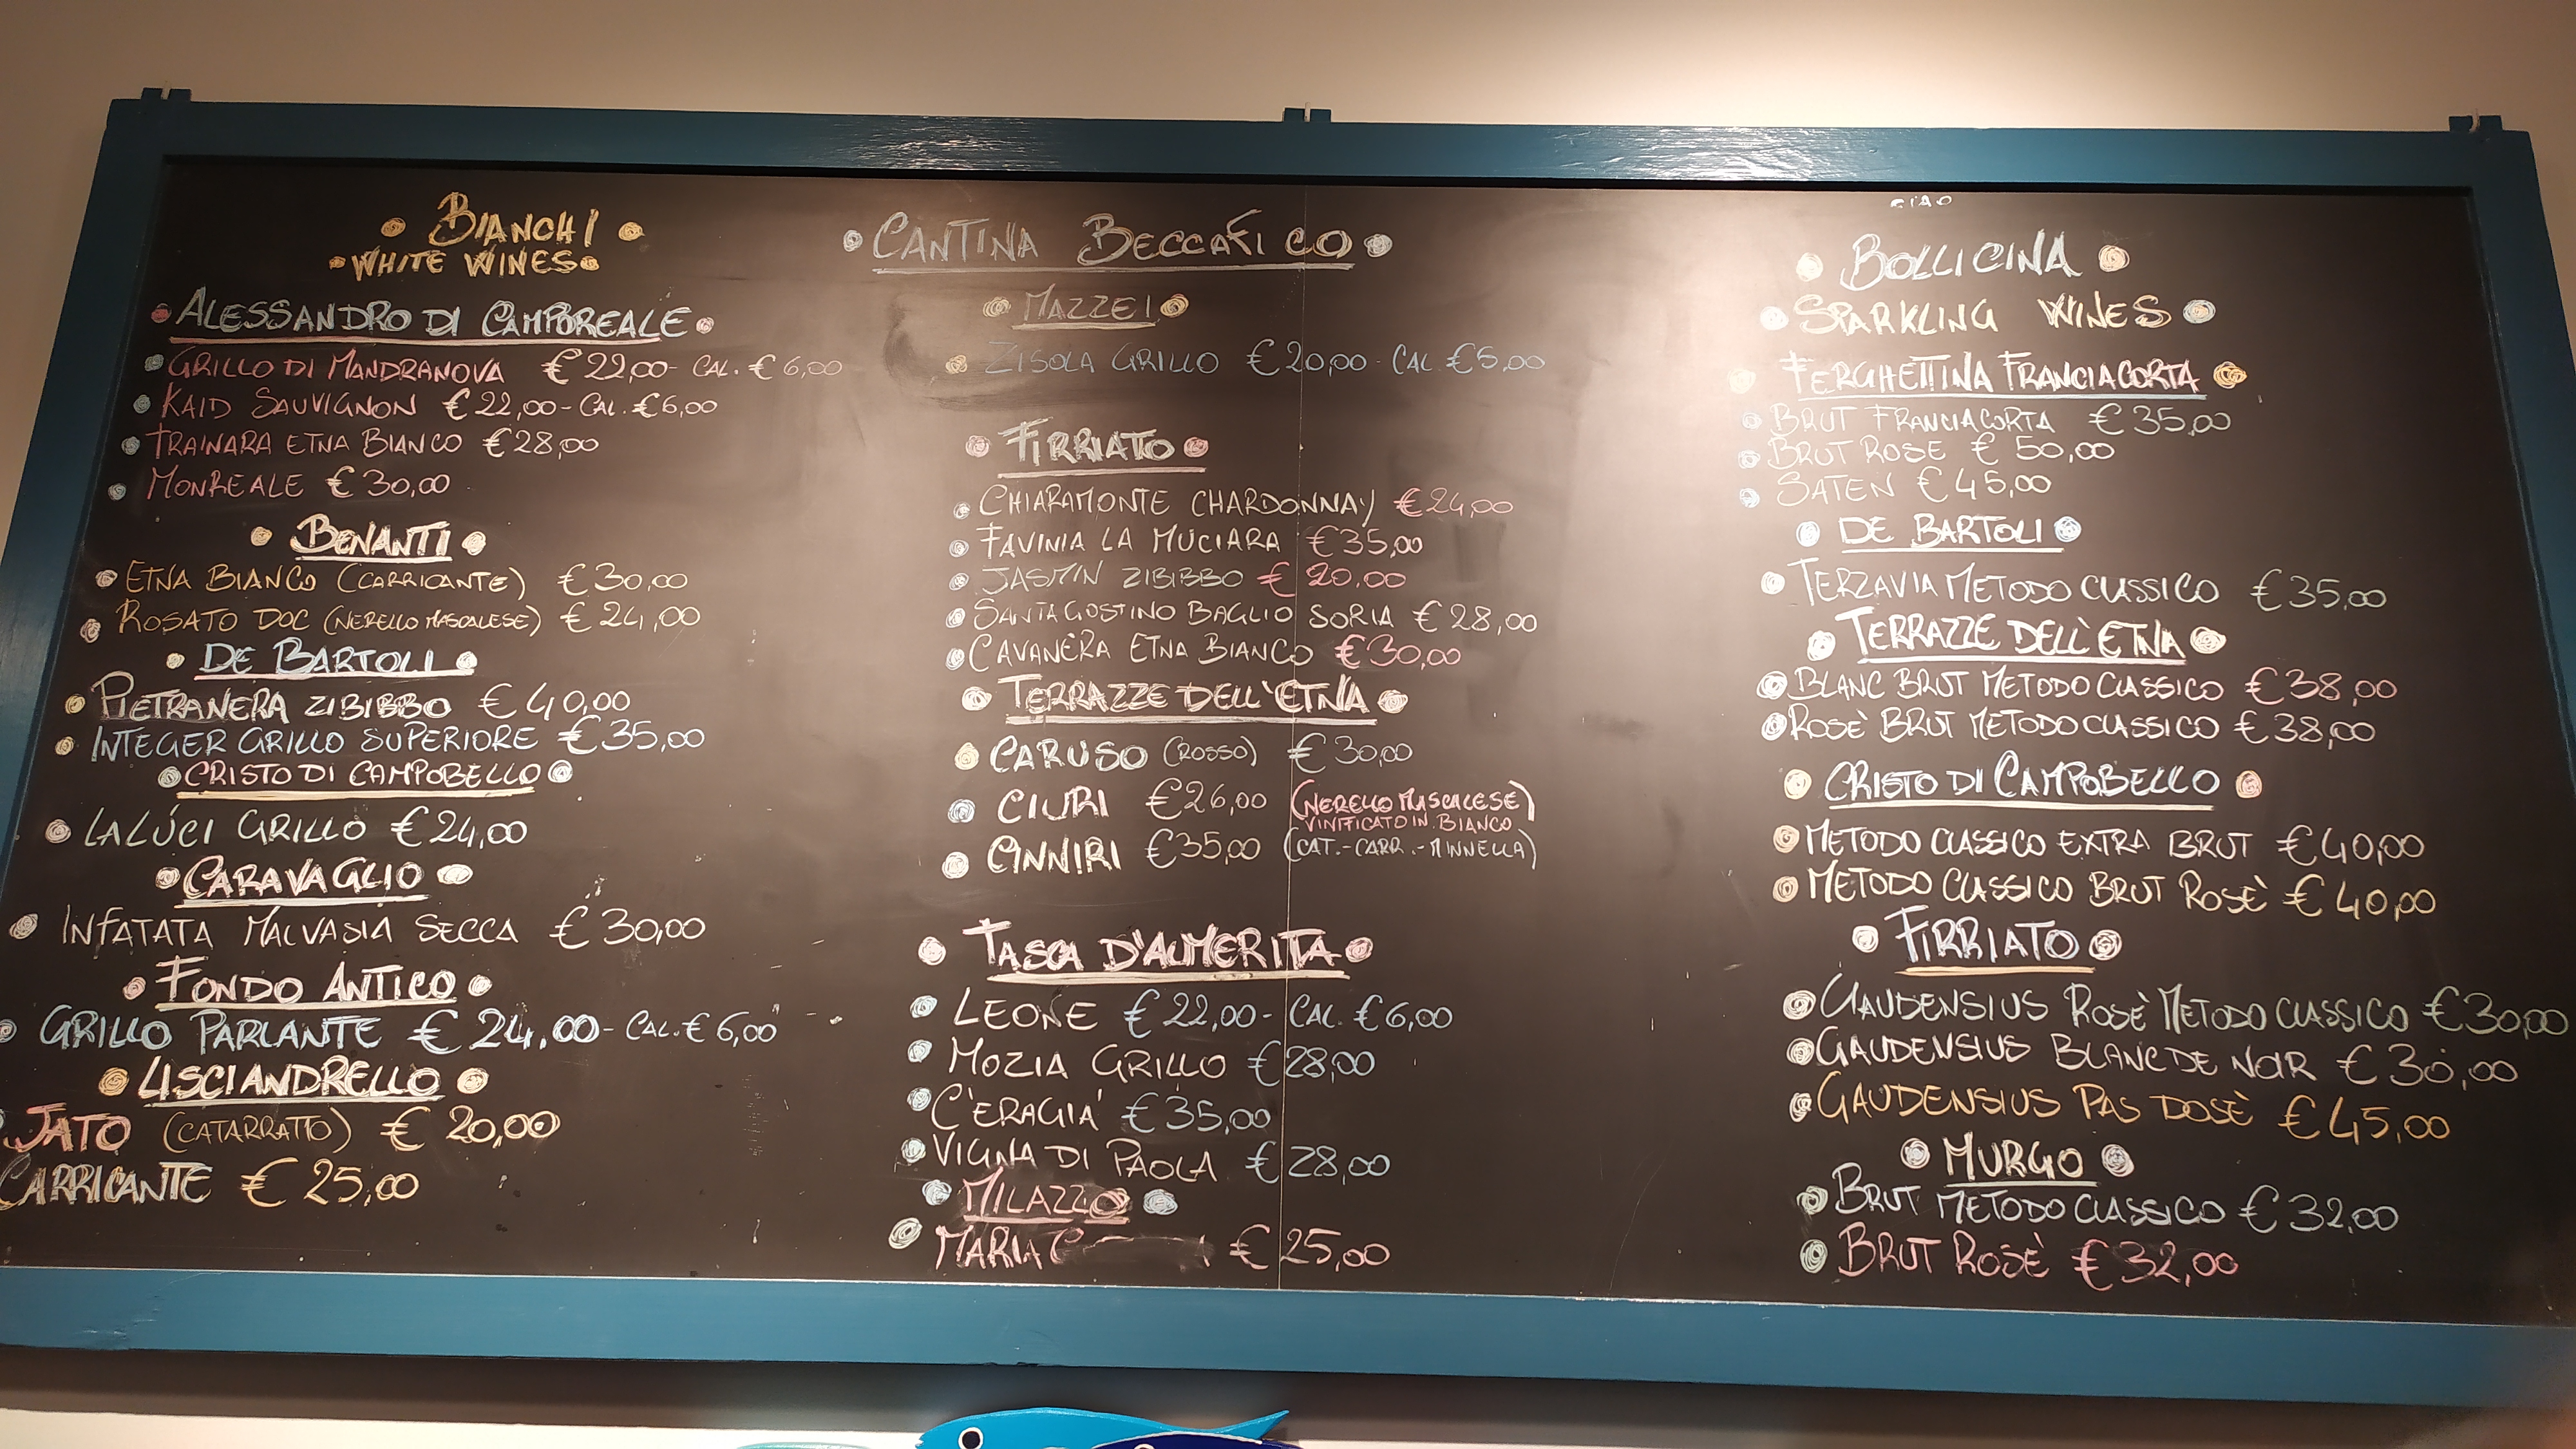 BIANCHI
WHITE WINES
ALESSANDRO DI CAMPOREALE
GRILLO DI MANDRANOVA €22,00 - CAL. €6,00
KAID SAUVIGNON €22,00 - CAL. €6,00
TRAINARA ETNA BIANCO €28,00
MONREALE €30,00
BENANTI
ETNA BIANCO (CARRICANTE) €30,00
ROSATO DOC (NERELLO MASCALESE) €24,00
DE BARTOLI
PIETRANERA ZIBIBBO €40,00
INTEGER GRILLO SUPERIORE €35,00
CRISTO DI CAMPOBELLO
LALÚCI GRILLO €24,00
CARAVAGLIO
INFATATA MALVASIA SECCA €30,00
FONDO ANTICO
GRILLO PARLANTE €24,00 - CAL. €6,00
LISCIANDRELLO
JATO (CATARRATTO) €20,00
CARRICANTE €25,00
CANTINA BECCAFICO
MAZZEI
ZISOLA GRILLO €20,00 - CAL €5,00
FIRRIATO
CHIARAMONTE CHARDONNAY €24,00
FAVINIA LA MUCIARA €35,00
JASMIN ZIBIBBO €20,00
SANTAGOSTINO BAGLIO SORIA €28,00
CAVANÈRA ETNA BIANCO €30,00
TERRAZZE DELL'ETNA
CARUSO (ROSSO) €30,00
CIURI €26,00 (NERELLO MASCALESE
VINIFICATO IN BIANCO)
CINNIRI €35,00 (CAT.-CARR.-MINNELLA)
TASCA D'ALMERITA
LEONE €22,00 - CAL. €6,00
MOZIA GRILLO €28,00
C'ERAGIA' €35,00
VIGNA DI PAOLA €28,00
MILAZZO
MARIA €25,00
CIAO
BOLLICINA
SPARKLING WINES
FERGHETTINA FRANCIACORTA
BRUT FRANCIACORTA €35,00
BRUT ROSE €50,00
SATEN €45,00
DE BARTOLI
TERZAVIA METODO CLASSICO €35,00
TERRAZZE DELL'ETNA
BLANC BRUT METODO CLASSICO €38,00
ROSÈ BRUT METODO CLASSICO €38,00
CRISTO DI CAMPOBELLO
METODO CLASSICO EXTRA BRUT €40,00
METODO CLASSICO BRUT ROSÈ €40,00
FIRRIATO
GAUDENSIUS ROSÈ METODO CLASSICO €30,00
GAUDENSIUS BLANC DE NOIR €30,00
GAUDENSIUS PAS DOSÈ €45,00
MURGO
BRUT METODO CLASSICO €32,00
BRUT ROSÈ €32,00